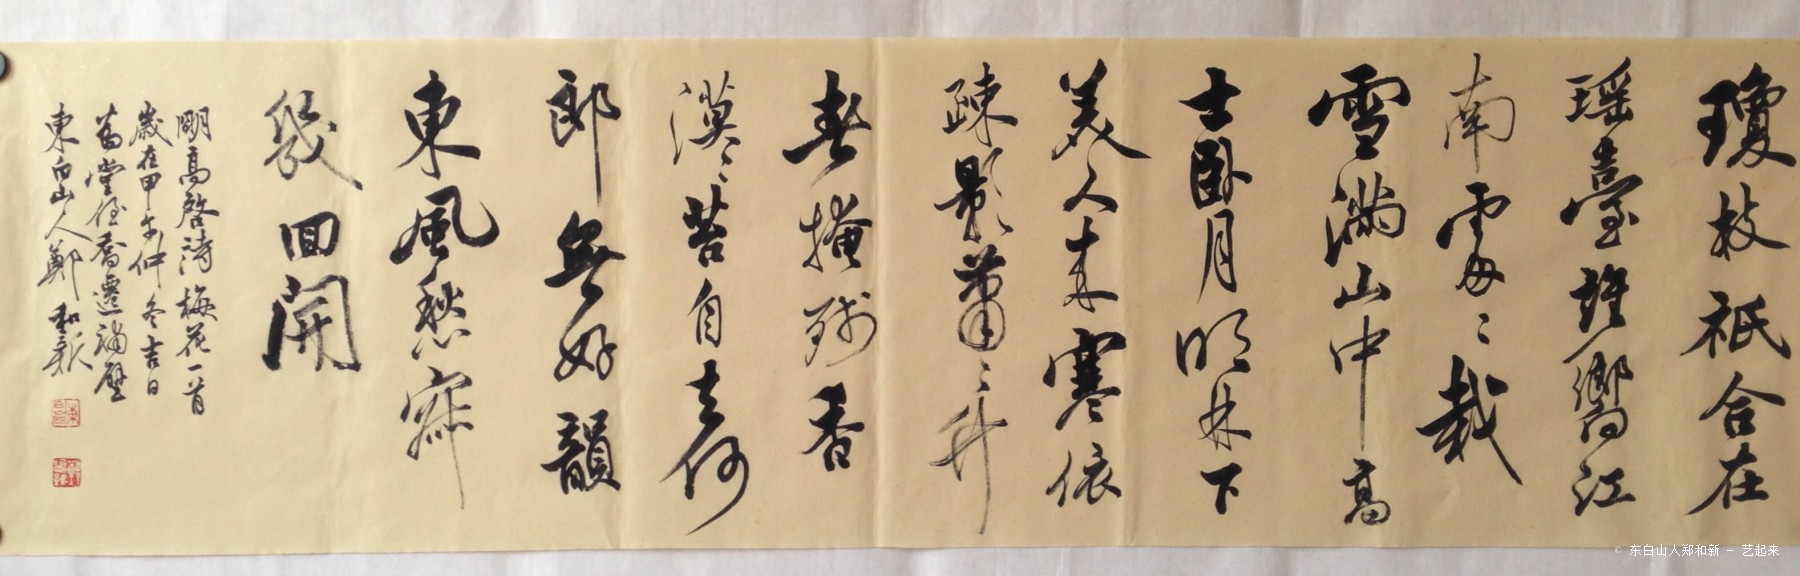 瓊枝祇合在
瑶臺誰嚮江
南處〻栽
雪滿山中高
士卧月明林下
美人来寒依
疎影蕭〻竹
春掩殘香
漠〻苔自去何
郎無好韻
東風愁寂
幾回開
明高啓詩梅花一首
歲在甲午仲冬吉日
為堂侄喬遷補壁
東白山人鄭和新
© 东白山人郑和新 - 艺起来